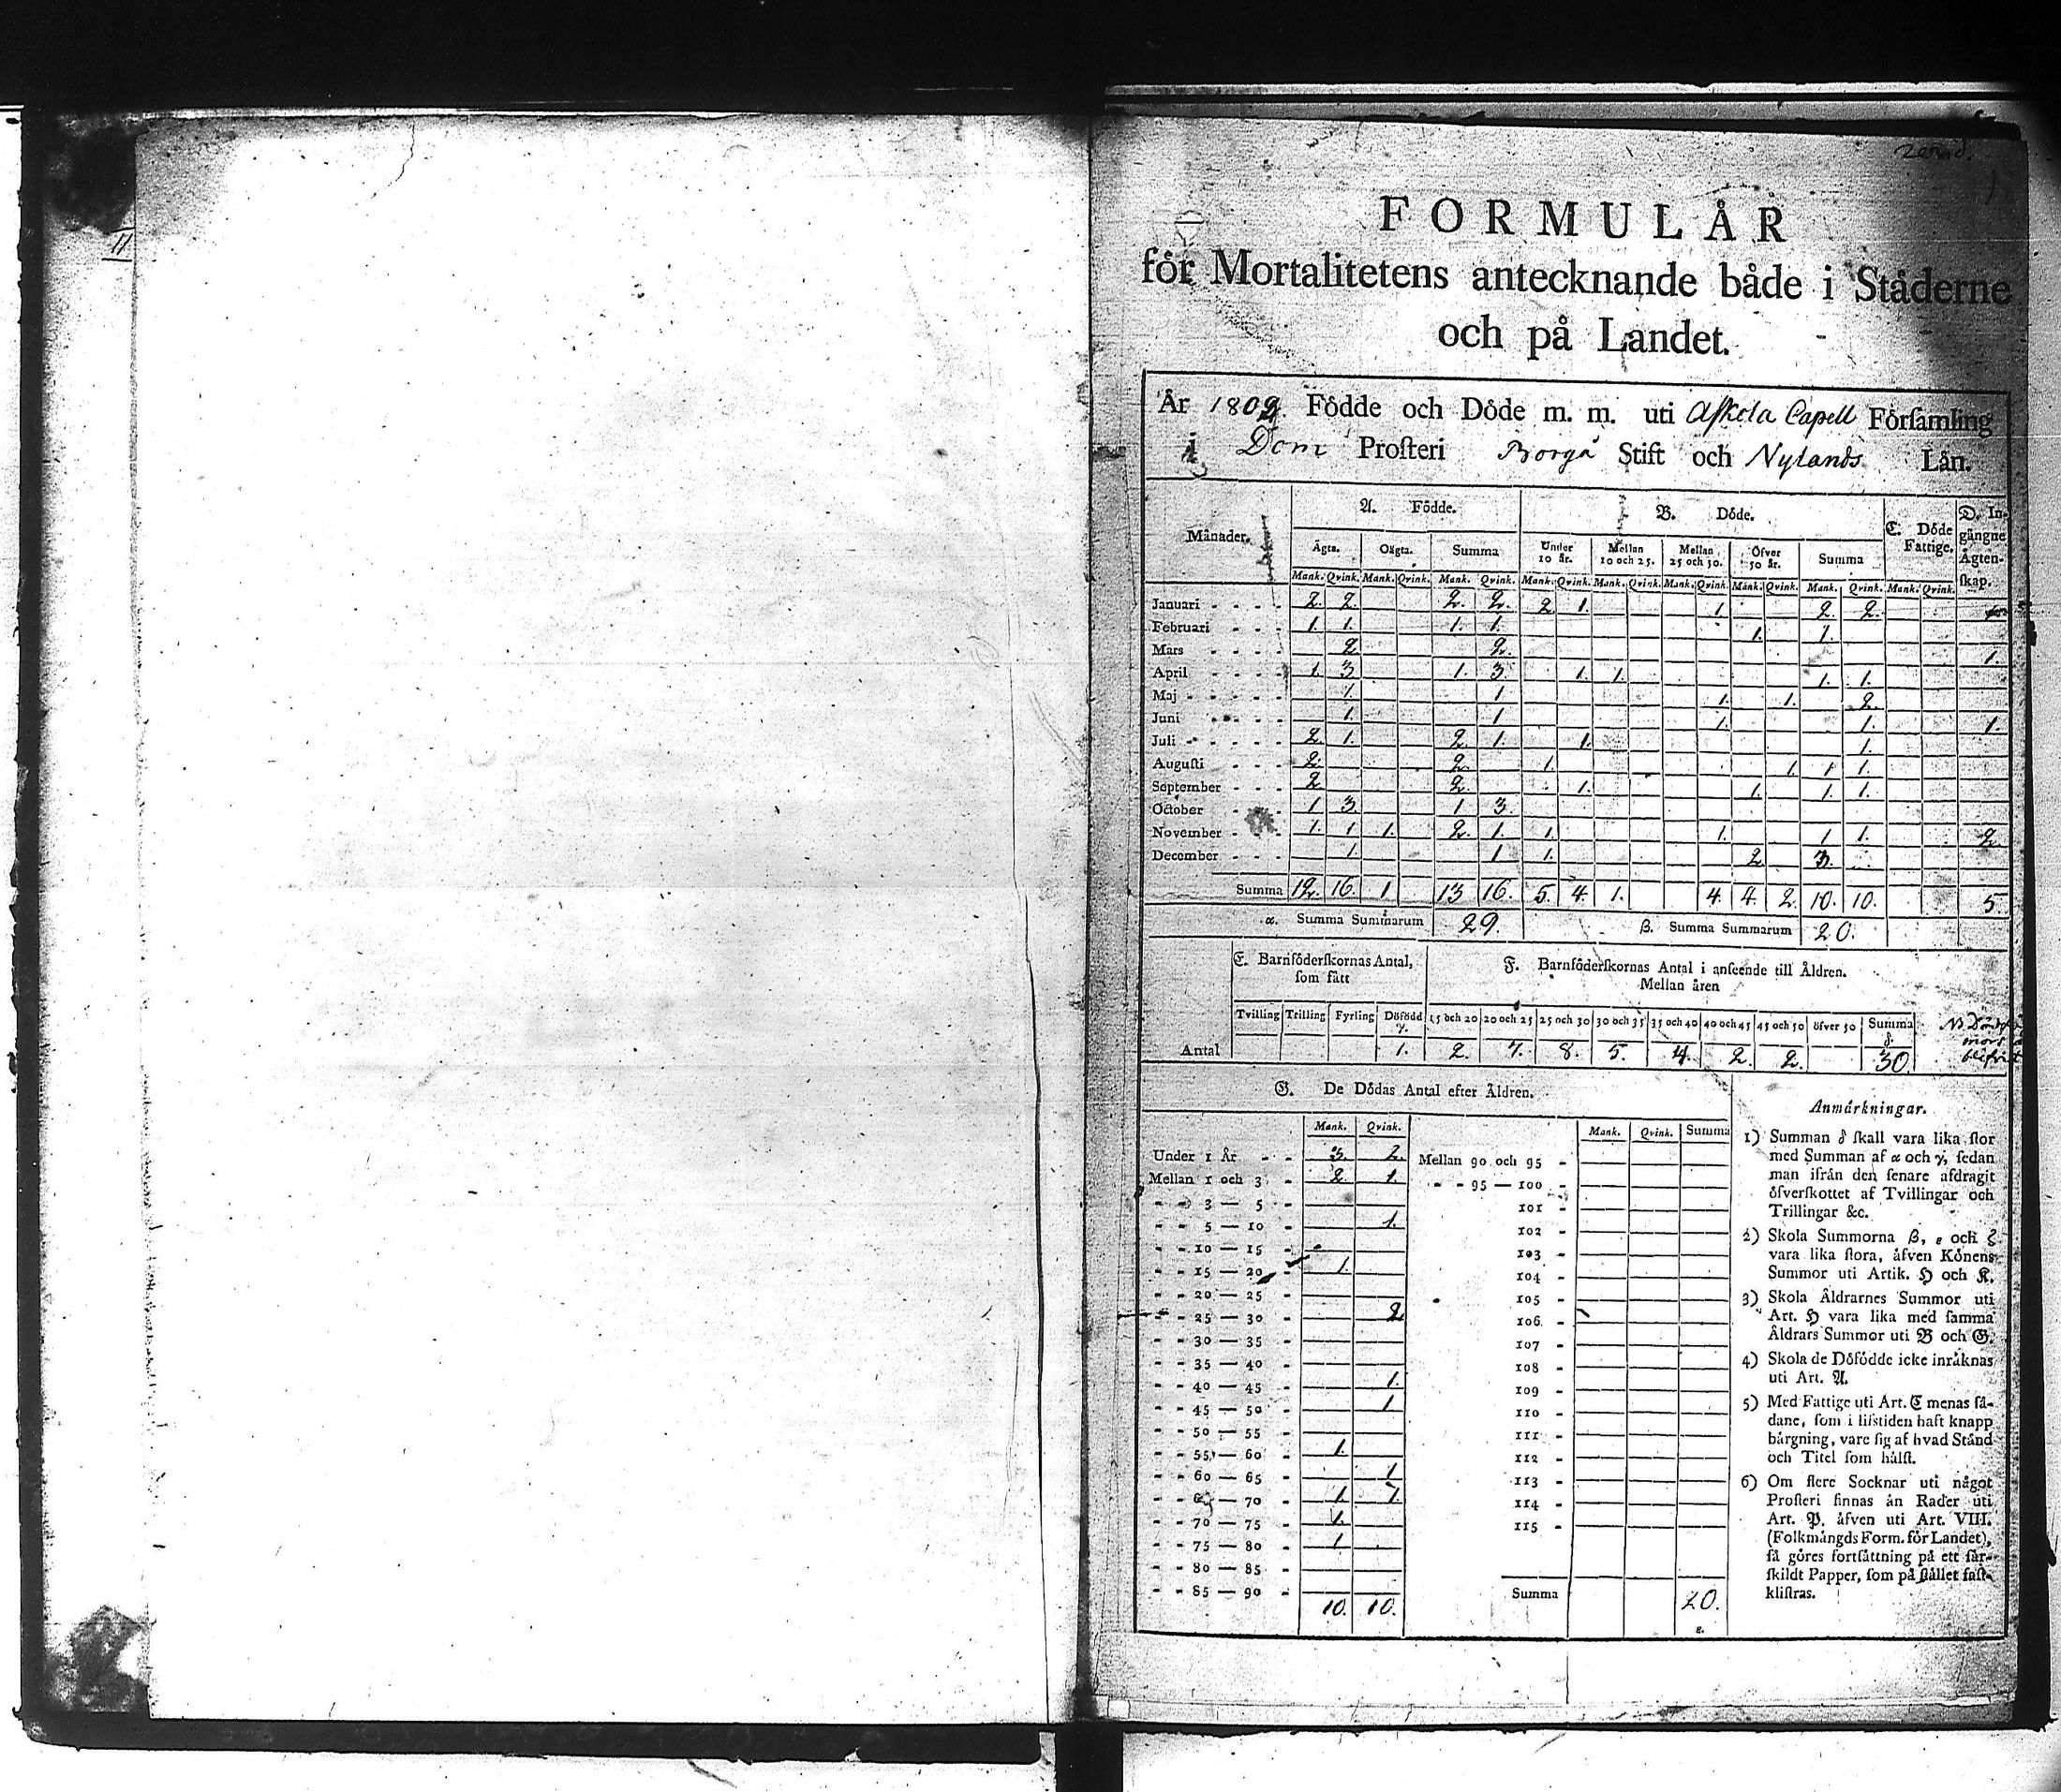 11
FORMULÅR
för Mortalitetens antecknande både i Ståderne
och på Landet.
År 1809 Födde och Döde m. m. uti Askola Capell Församling
i Dom Prosteri Borgå Stift och Nylands Län.
Månader. A. Födde. B. Döde. C. Döde Fattige. D. Ingångne Ägtenskap.
Ägta. Oägta. Summa Under 10 år. Mellan 10 och 25. Mellan 25 och 50. Öfver 50 år. Summa
Mank. Qvink. Mank. Qvink. Mank. Qvink. Mank. Qvink. Mank. Qvink. Mank. Qvink. Mank. Qvink. Mank. Qvink. Mank. Qvink.
Januari 2. 2. 2. 2. 2 1. 1. 2. 2.
Februari 1. 1. 1. 1. 1. 1.
Mars 2 2. 1.
April 1. 3 1. 3 1. 1. 1. 1.
Maj 1. 1 1. 1. 2.
Juni 1. 1 1. 1. 1.
Juli 2. 1. 2. 1. 1. 1.
Augusti 2. 2. 1. 1. 1 1.
September 2 2. 1. 1. 1. 1.
October 1 3. 1 3.
November 1. 1 1. 2. 1. 1. 1. 1 1. 2.
December 1. 1 1. 2 3.
Summa 12. 16. 1 13 16. 5. 4. 1. 4. 4. 2. 10. 10. 5.
α. Summa Summarum 29. β. Summa Summarum 20.
E. Barnföderskornas Antal, som fått F. Barnföderskornas Antal i anseende till Åldren.
Mellan åren
Tvilling Trilling Fyrling Döfödd γ. 15 och 20 20 och 25 25 och 30 30 och 35 35 och 40 40 och 45 45 och 50 öfver 50 Summa δ.
Antal 1. 2. 7. 8. 5. 4. 2. 2. 30.
G. De Dödas Antal efter Åldren.
Mank. Qvink. Mank. Qvink. Summa
Under 1 År 3. 2. Mellan 90 och 95
Mellan 1 och 3 2. 1. 95 — 100
3 — 5 101
5 — 10 1. 102
10 — 15 103
15 — 20 1. 104
20 — 25 105
25 — 30 2 106
30 — 35 107
35 — 40 108
40 — 45 1. 109
45 — 50 1 110
50 — 55 111
55 — 60 1. 112
60 — 65 1 113
70 1. 1. 114
70 — 75 1. 115
75 — 80 1
80 — 85
85 — 90 Summa 20.
10. 10. ε.
Anmärkningar.
1) Summan δ skall vara lika stor
med Summan af α och γ, sedan
man ifrån den senare afdragit
öfverskottet af Tvillingar och
Trillingar &c.
2) Skola Summorna β, ε och ζ
vara lika stora, äfven Könens
Summor uti Artik. H och K.
3) Skola Åldrarnes Summor uti
Art. H vara lika med samma
Åldrars Summor uti B och G.
4) Skola de Döfödde icke inräknas
uti Art. A.
5) Med Fattige uti Art. C menas så-
dane, som i lifstiden haft knapp
bärgning, vare sig af hvad Stånd
och Titel som hälst.
6) Om flere Socknar uti något
Prosteri finnas än Rader uti
Art. P. äfven uti Art. VIII.
(Folkmängds Form. för Landet),
så göres fortsättning på ett sär-
skildt Papper, som på stället fast-
klistras.